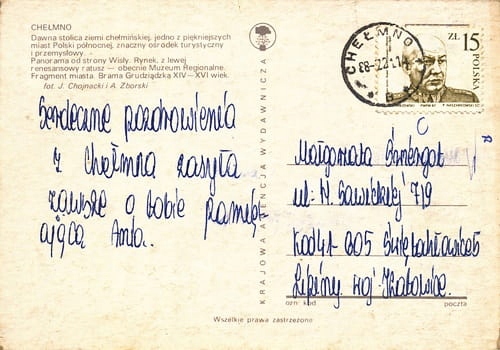 CHEŁMNO
Dawna stolica ziemi chełmińskiej, jedno z piękniejszych
miast Polski północnej, znaczny ośrodek turystyczny
i przemysłowy.
Panorama od strony Wisły. Rynek, z lewej
renesansowy ratusz — obecnie Muzeum Regionalne.
Fragment miasta. Brama Grudziądzka XIV—XVI wiek.
fot. J. Chojnacki i A. Zborski
Serdeczne pozdrowienia
z Chełmna zasyła
zawsze o tobie pamięt-
ająca Ania..
KRAJOWA AGENCJA WYDAWNICZA
CHEŁMNO
ZŁ 15
POLSKA
Małgorzata
ul. N. Sawickiej 7/9
Kod 41-605 Świętochłowice 5
Lipiny woj. Katowice.
ozn. kod
poczta
Wszelkie prawa zastrzeżone